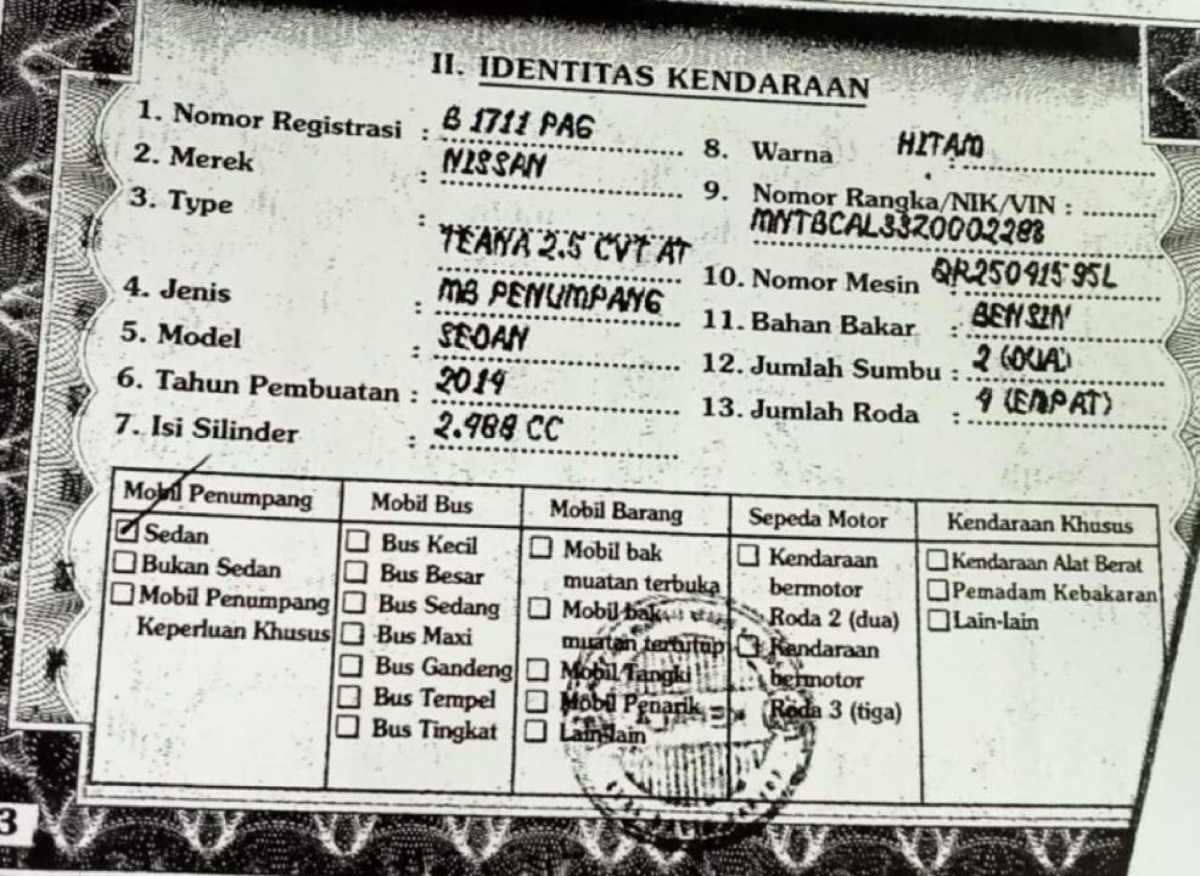 II. IDENTITAS KENDARAAN
1. Nomor Registrasi : B 1711 PAG
2. Merek : NISSAN
3. Type :
TEANA 2.5 CVT AT
4. Jenis : MB PENUMPANG
5. Model : SEDAN
6. Tahun Pembuatan : 2014
7. Isi Silinder : 2.488 CC
8. Warna : HITAM
9. Nomor Rangka/NIK/VIN :
MNTBCAL33Z0002288
10. Nomor Mesin : QR25091595L
11. Bahan Bakar : BENSIN
12. Jumlah Sumbu : 2 (DUA)
13. Jumlah Roda : 4 (EMPAT)
Mobil Penumpang
Sedan
Bukan Sedan
Mobil Penumpang
Keperluan Khusus
Mobil Bus
Bus Kecil
Bus Besar
Bus Sedang
Bus Maxi
Bus Gandeng
Bus Tempel
Bus Tingkat
Mobil Barang
Mobil bak
muatan terbuka
Mobil bak
muatan tertutup
Mobil Tangki
Mobil Penarik
Lain-lain
Sepeda Motor
Kendaraan
bermotor
Roda 2 (dua)
Kendaraan
bermotor
Roda 3 (tiga)
Kendaraan Khusus
Kendaraan Alat Berat
Pemadam Kebakaran
Lain-lain
3